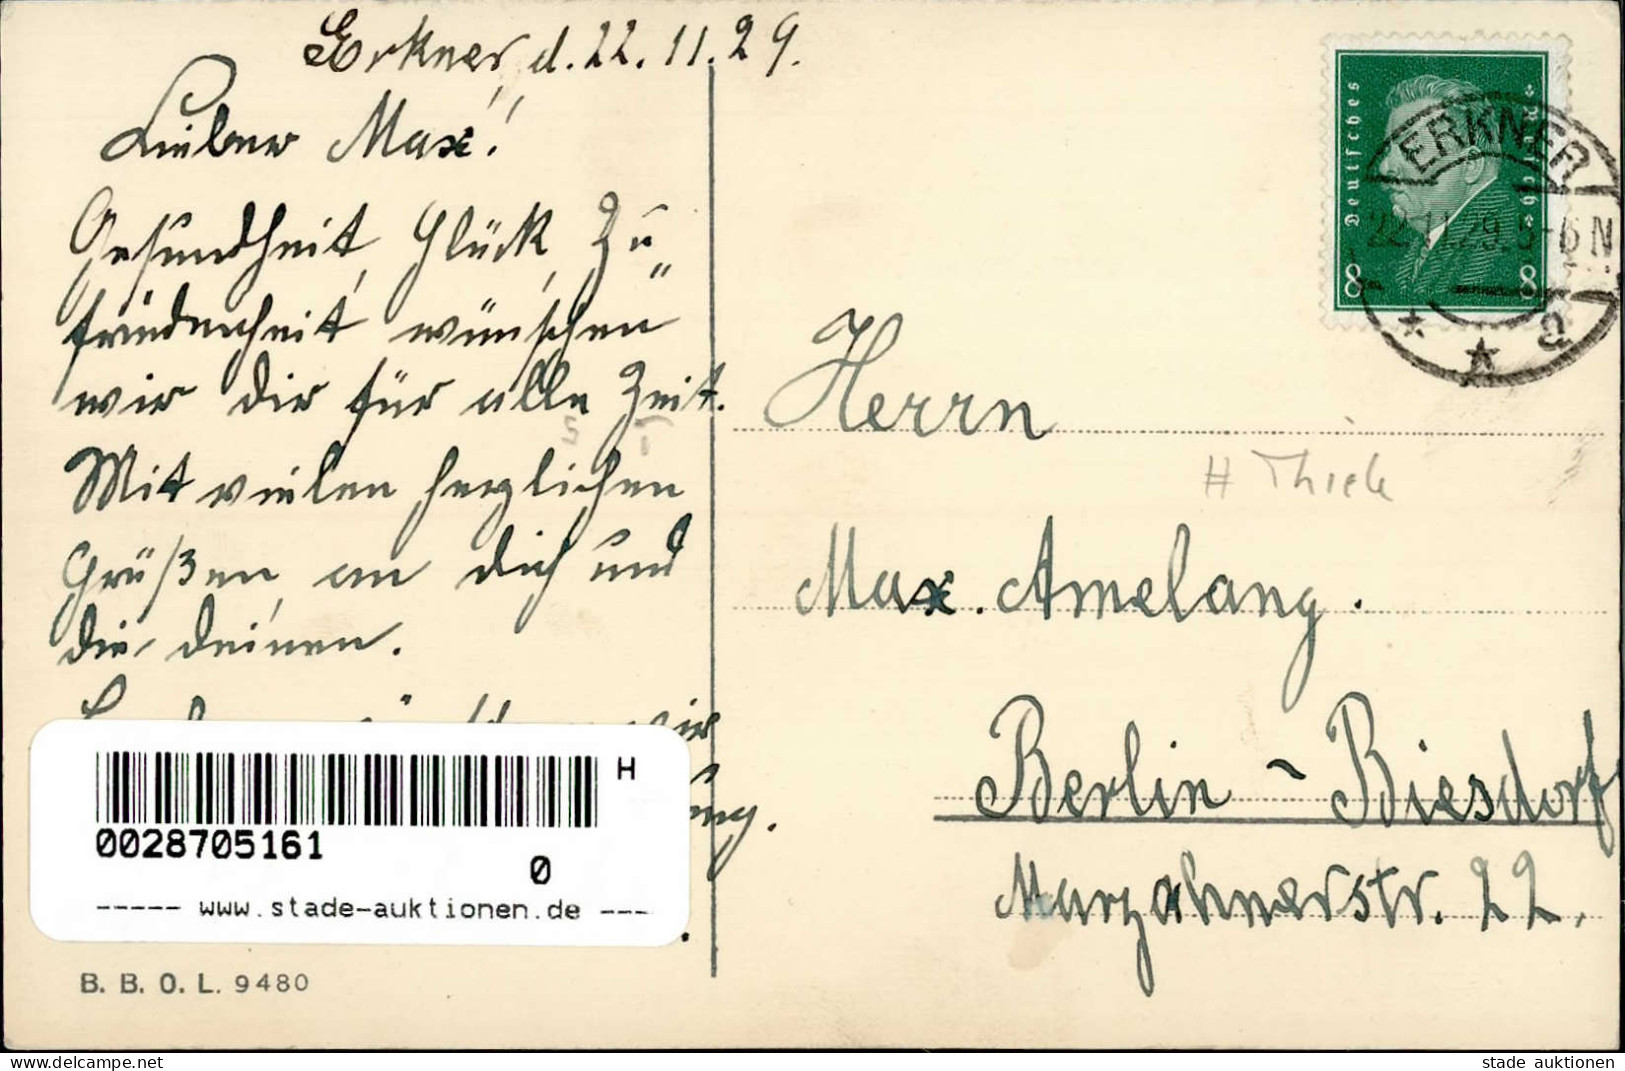 Erkner, d. 22.11.29.
Lieber Max!
Gesundheit, Glück, Zu„
friedenheit wünschen
wir dir für alle Zeit.
Mit vielen herzlichen
Grüßen, an dich und
die deinen.
wir
ung.
H
0028705161
0
----- www.stade-auktionen.de ---
B. B. O. L. 9480
Deutsches Reich
8 8
ERKNER
22.11.29. 5-6 N
* * a
Herrn
H Thiele
Max. Amelang.
Berlin - Biesdorf
Marzahnerstr. 22.
www.delcampe.net
stade auktionen